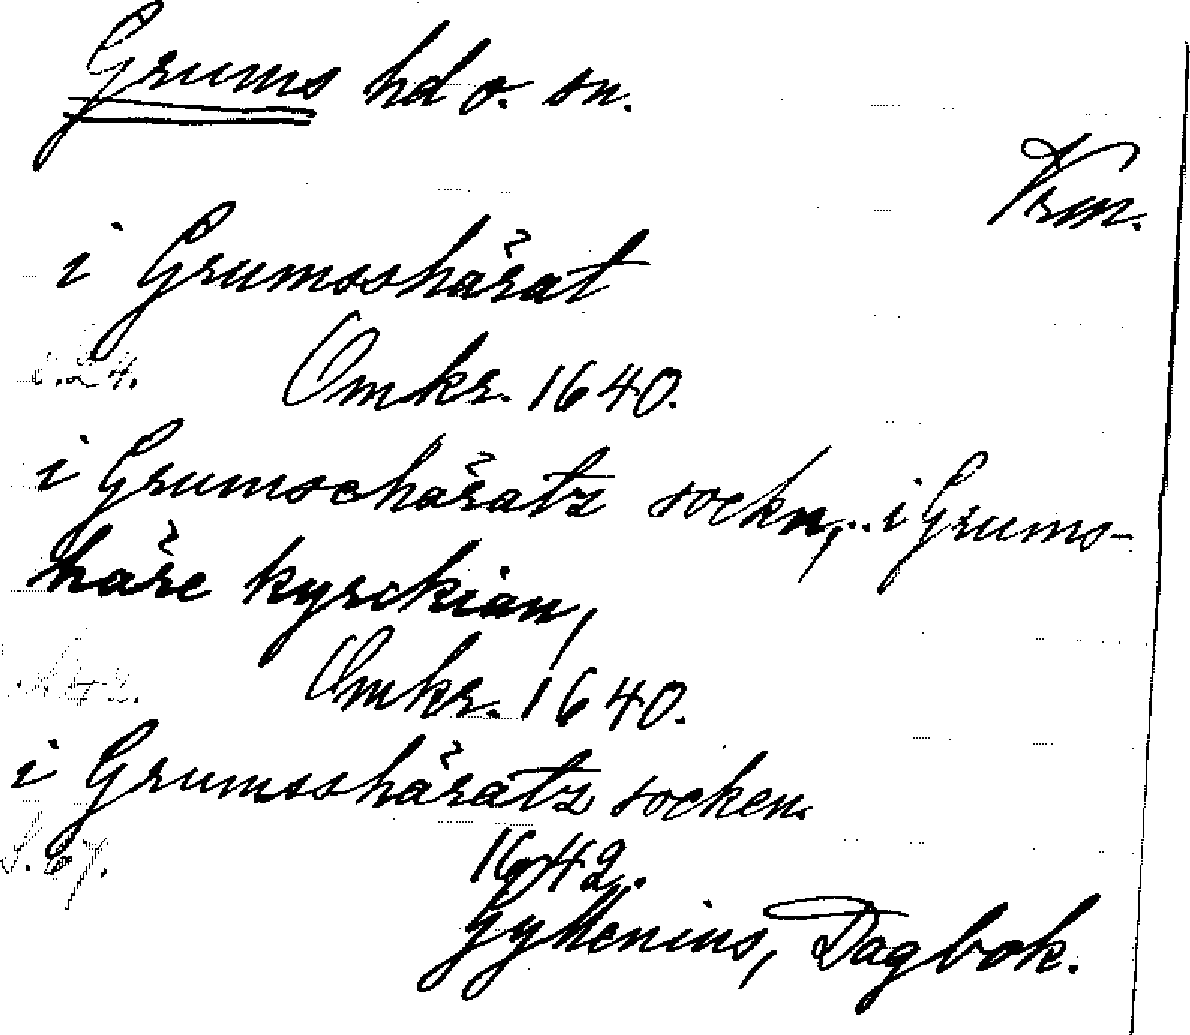 Grums hd o. sn.
Vrm.
i Grumsshårat
s. 24. Omkr. 1640.
i Grumschåratz sockn, .. i Grums-
håre kyrckian,
Omkr. 1640.
i Grumsshåratz socken.
S. 67. 1642.
Gyllenius, Dagbok.